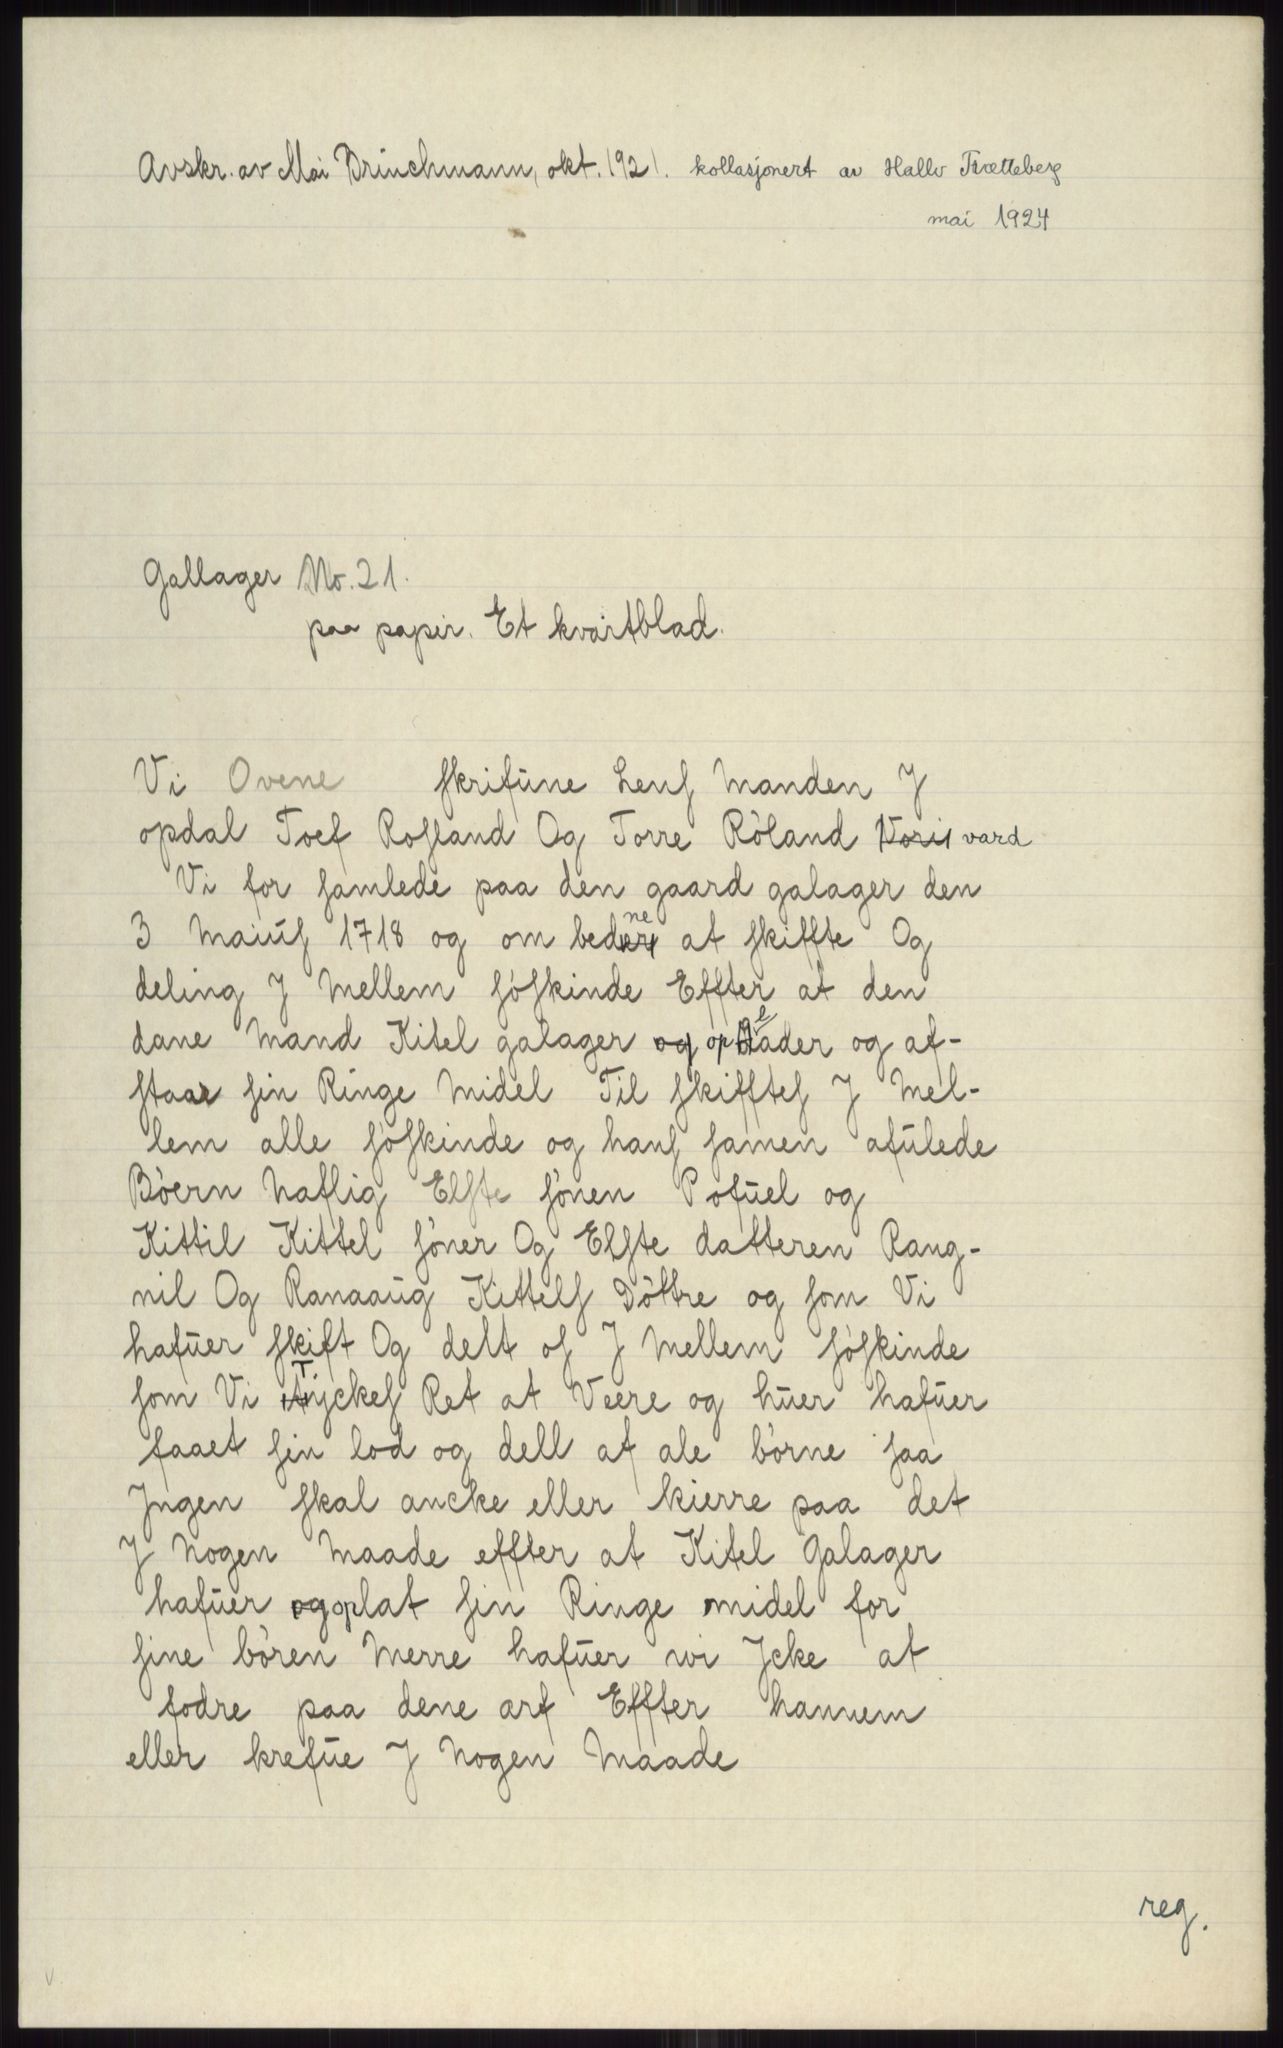 Avskr. av Mai Brinchmann, okt. 1921. kollasjonert av Hallv Trætteberg
mai 1924
Gallager No. 21.
paa papir. Et kvartblad.
Vi Ovene skrifúne Lens Manden J
opdal Toef Rosland Og Torre Róland vard
Vi for samlede paa den gaard galager den
3 Maiús 1718 og om bedne at skiffte Og
deling J Mellem sóskinde Effter at den
dane Mand Kitel galager oplader og af-
staar sin Ringe Midel Til skifftes J Mel-
lem alle sóskinde og hans samen afúlede
Bóern Naflig Elste sónen Pofúel og
Kittil Kittel sóner Og Elste datteren Rang-
nil Og Ranaaúg Kittels Dóttre og som Vi
hafúer skift Og delt os J Mellem sóskinde
som Vi Tyckes Ret at Veere og húer hafúer
faaet sin lod og dell af ale bórne saa
Jngen skal ancke eller kierre paa det
J Nogen Maade effter at Kitel Galager
hafúer oplat sin Ringe midel for
sine bóren Merre hafúer wi Jcke at
fodre paa dene arf Effter hannem
eller krefúe J Nogen Maade
reg.